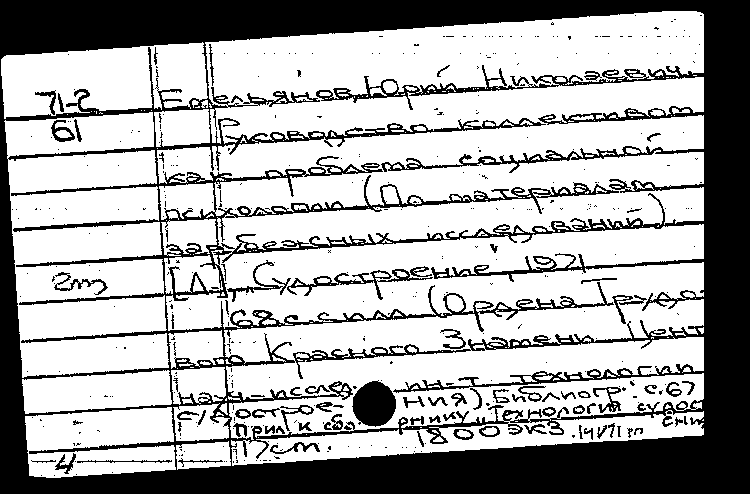 71-2 Емельянов, Юрий Николаевич.
61 Руководство коллективом
как проблема социальной
психологии (По материалам
зарубежных исследований).
2т [Л.], „Судостроение", 1971
68 с. с илл. (Ордена Трудо-
вого Красного Знамени Цент
науч.-исслед. ин-т технологии
судострое- ния). Библиогр.: с. 67
Прил. к сбо рнику „Технология судост
17 см. 1800 экз.
4